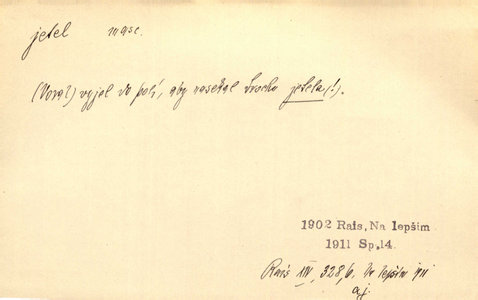 jetel masc.
(Voral) vyjel do polí, aby nasekal trochu jetela (!).
1902 Rais, Na lepším
1911 Sp.14.
Rais XIV, 328/6. Na lepším 1911
aj.